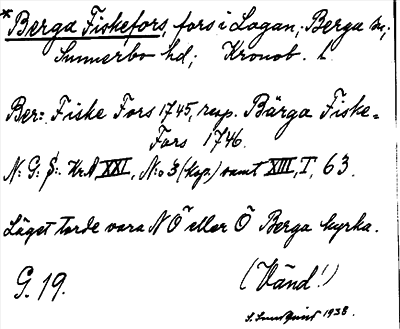 * Berga Fiskefors, fors i Lagan; Berga sn;
Sunnerbo hd; Kronob. l.
Ber: Fiske Fors 1745, resp. Bärga Fiske-
Fors 1746.
N: G: S: KrA XXI, N:o 3 (kop.) samt XIII, I, 63.
Läget torde vara N Ö eller Ö Berga kyrka.
G. 19.
(Vänd!)
S. Sundquist 1938.